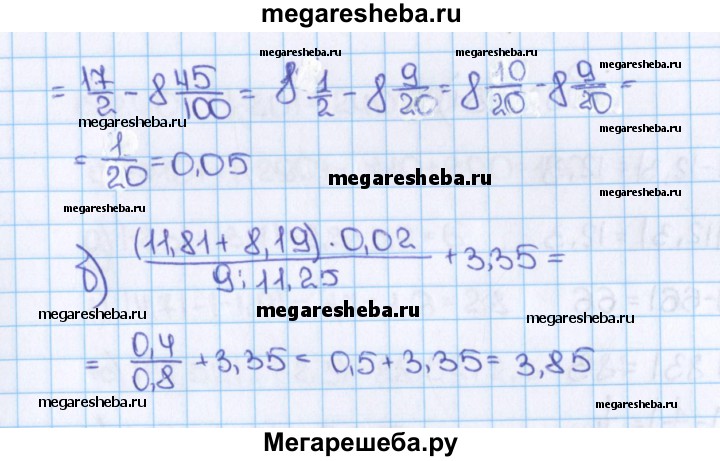 megaresheba.ru
megaresheba.ru
= 17/2 - 8 45/100 = 8 1/2 - 8 9/20 = 8 10/20 - 8 9/20 =
megaresheba.ru megaresheba.ru megaresheba.ru
= 1/20 = 0,05
megaresheba.ru
megaresheba.ru
megaresheba.ru
б) (11,81 + 8,19) · 0,02 / 9 : 11,25 + 3,35 =
megaresheba.ru
megaresheba.ru megaresheba.ru
= 0,4/0,8 + 3,35 = 0,5 + 3,35 = 3,85
megaresheba.ru megaresheba.ru
megaresheba.ru
Мегарешеба.ру